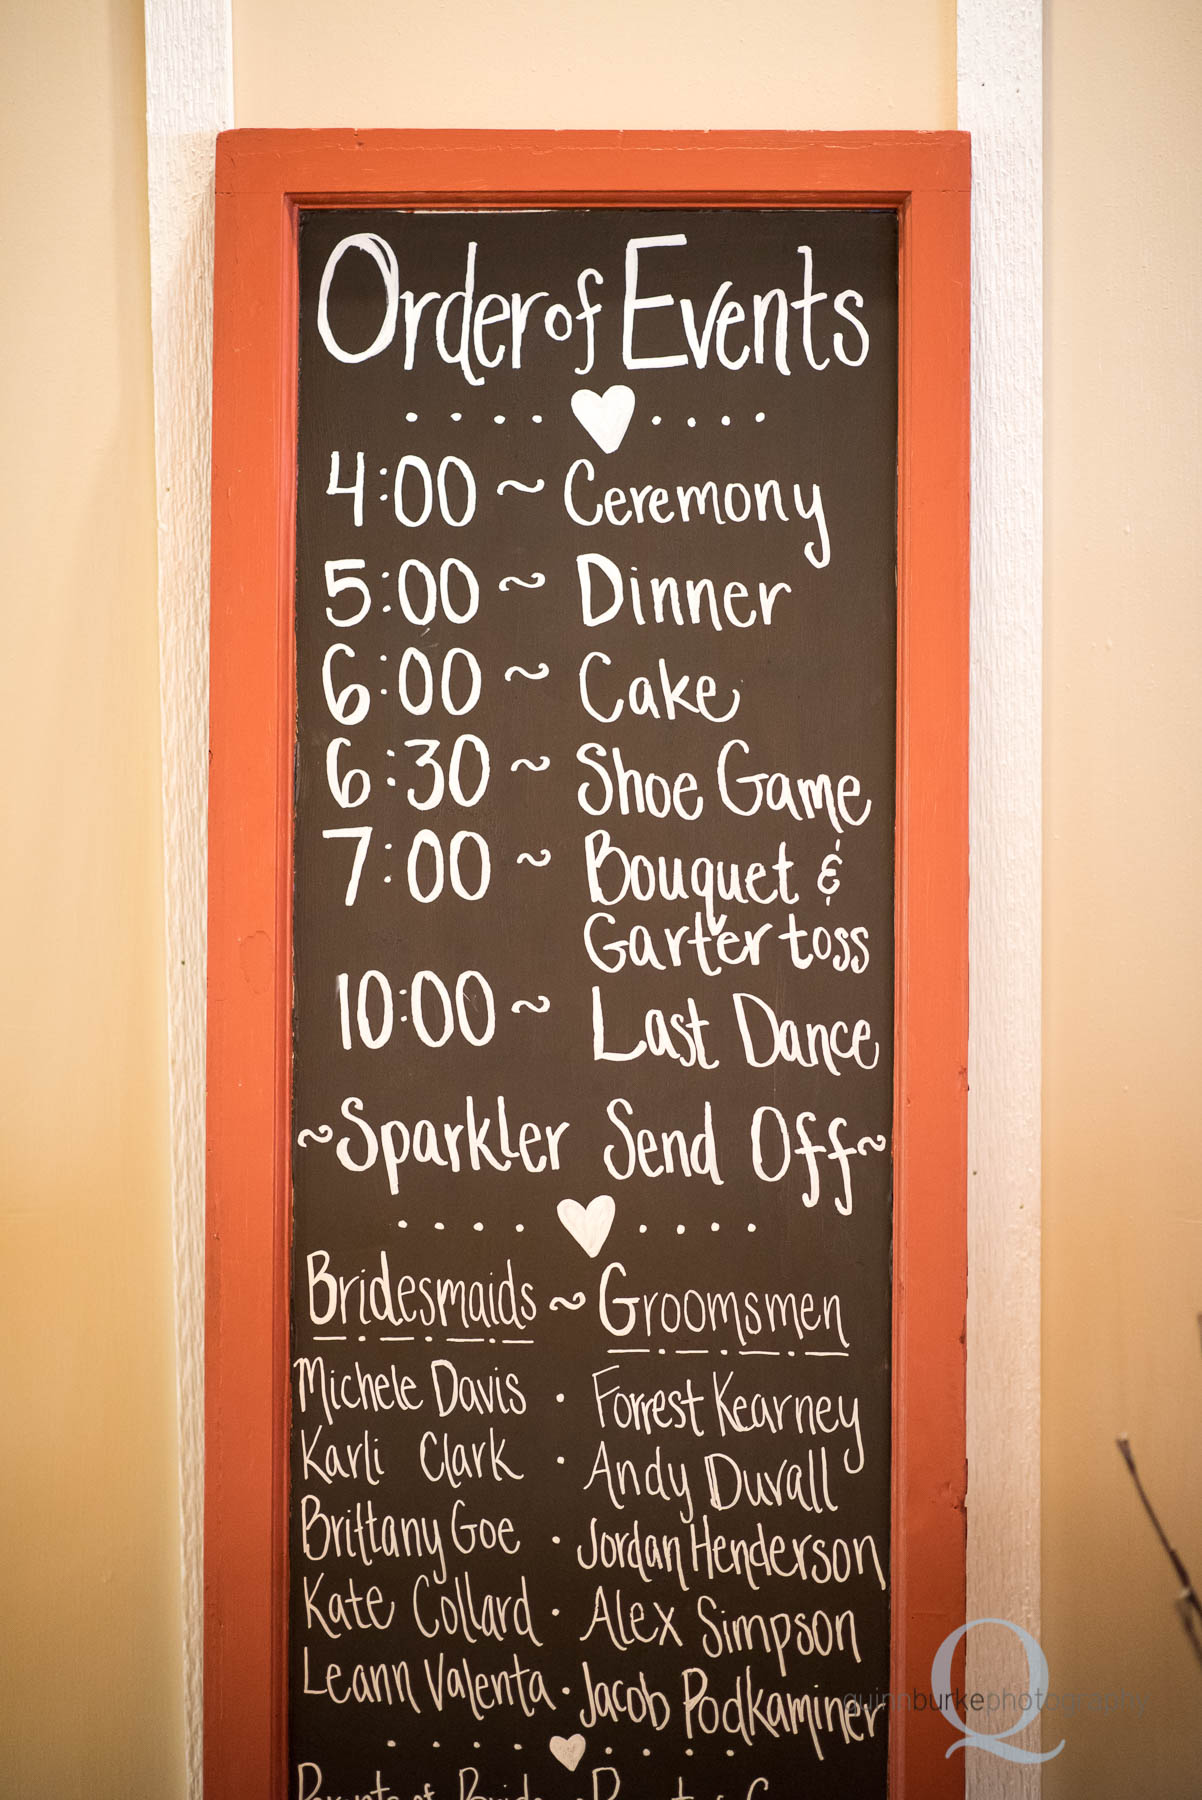 Order of Events
4:00 ~ Ceremony
5:00 ~ Dinner
6:00 ~ Cake
6:30 ~ Shoe Game
7:00 ~ Bouquet &
Garter toss
10:00 ~ Last Dance
~Sparkler Send Off~
Bridesmaids ~ Groomsmen
Michele Davis · Forrest Kearney
Karli Clark · Andy Duvall
Brittany Goe · Jordan Henderson
Kate Collard · Alex Simpson
Leann Valenta · Jacob Podkaminer
Parents of Bride
Q
quinnburkephotography